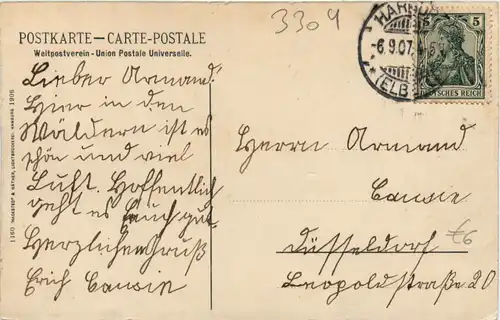 3304
POSTKARTE—CARTE-POSTALE
Weltpostverein - Union Postale Universelle.
HARBURG
-6.9.07.
(ELBE)
5 5
DEUTSCHES REICH
Lieber Armand!
Hier in den
Wäldern ist es
schön und viel
Luft. Hoffentlich
geht es auch gut.
Herzlichen Gruß
Erich
Herrn Armand
Düsseldorf
Leopoldstraße 20
€6
1906